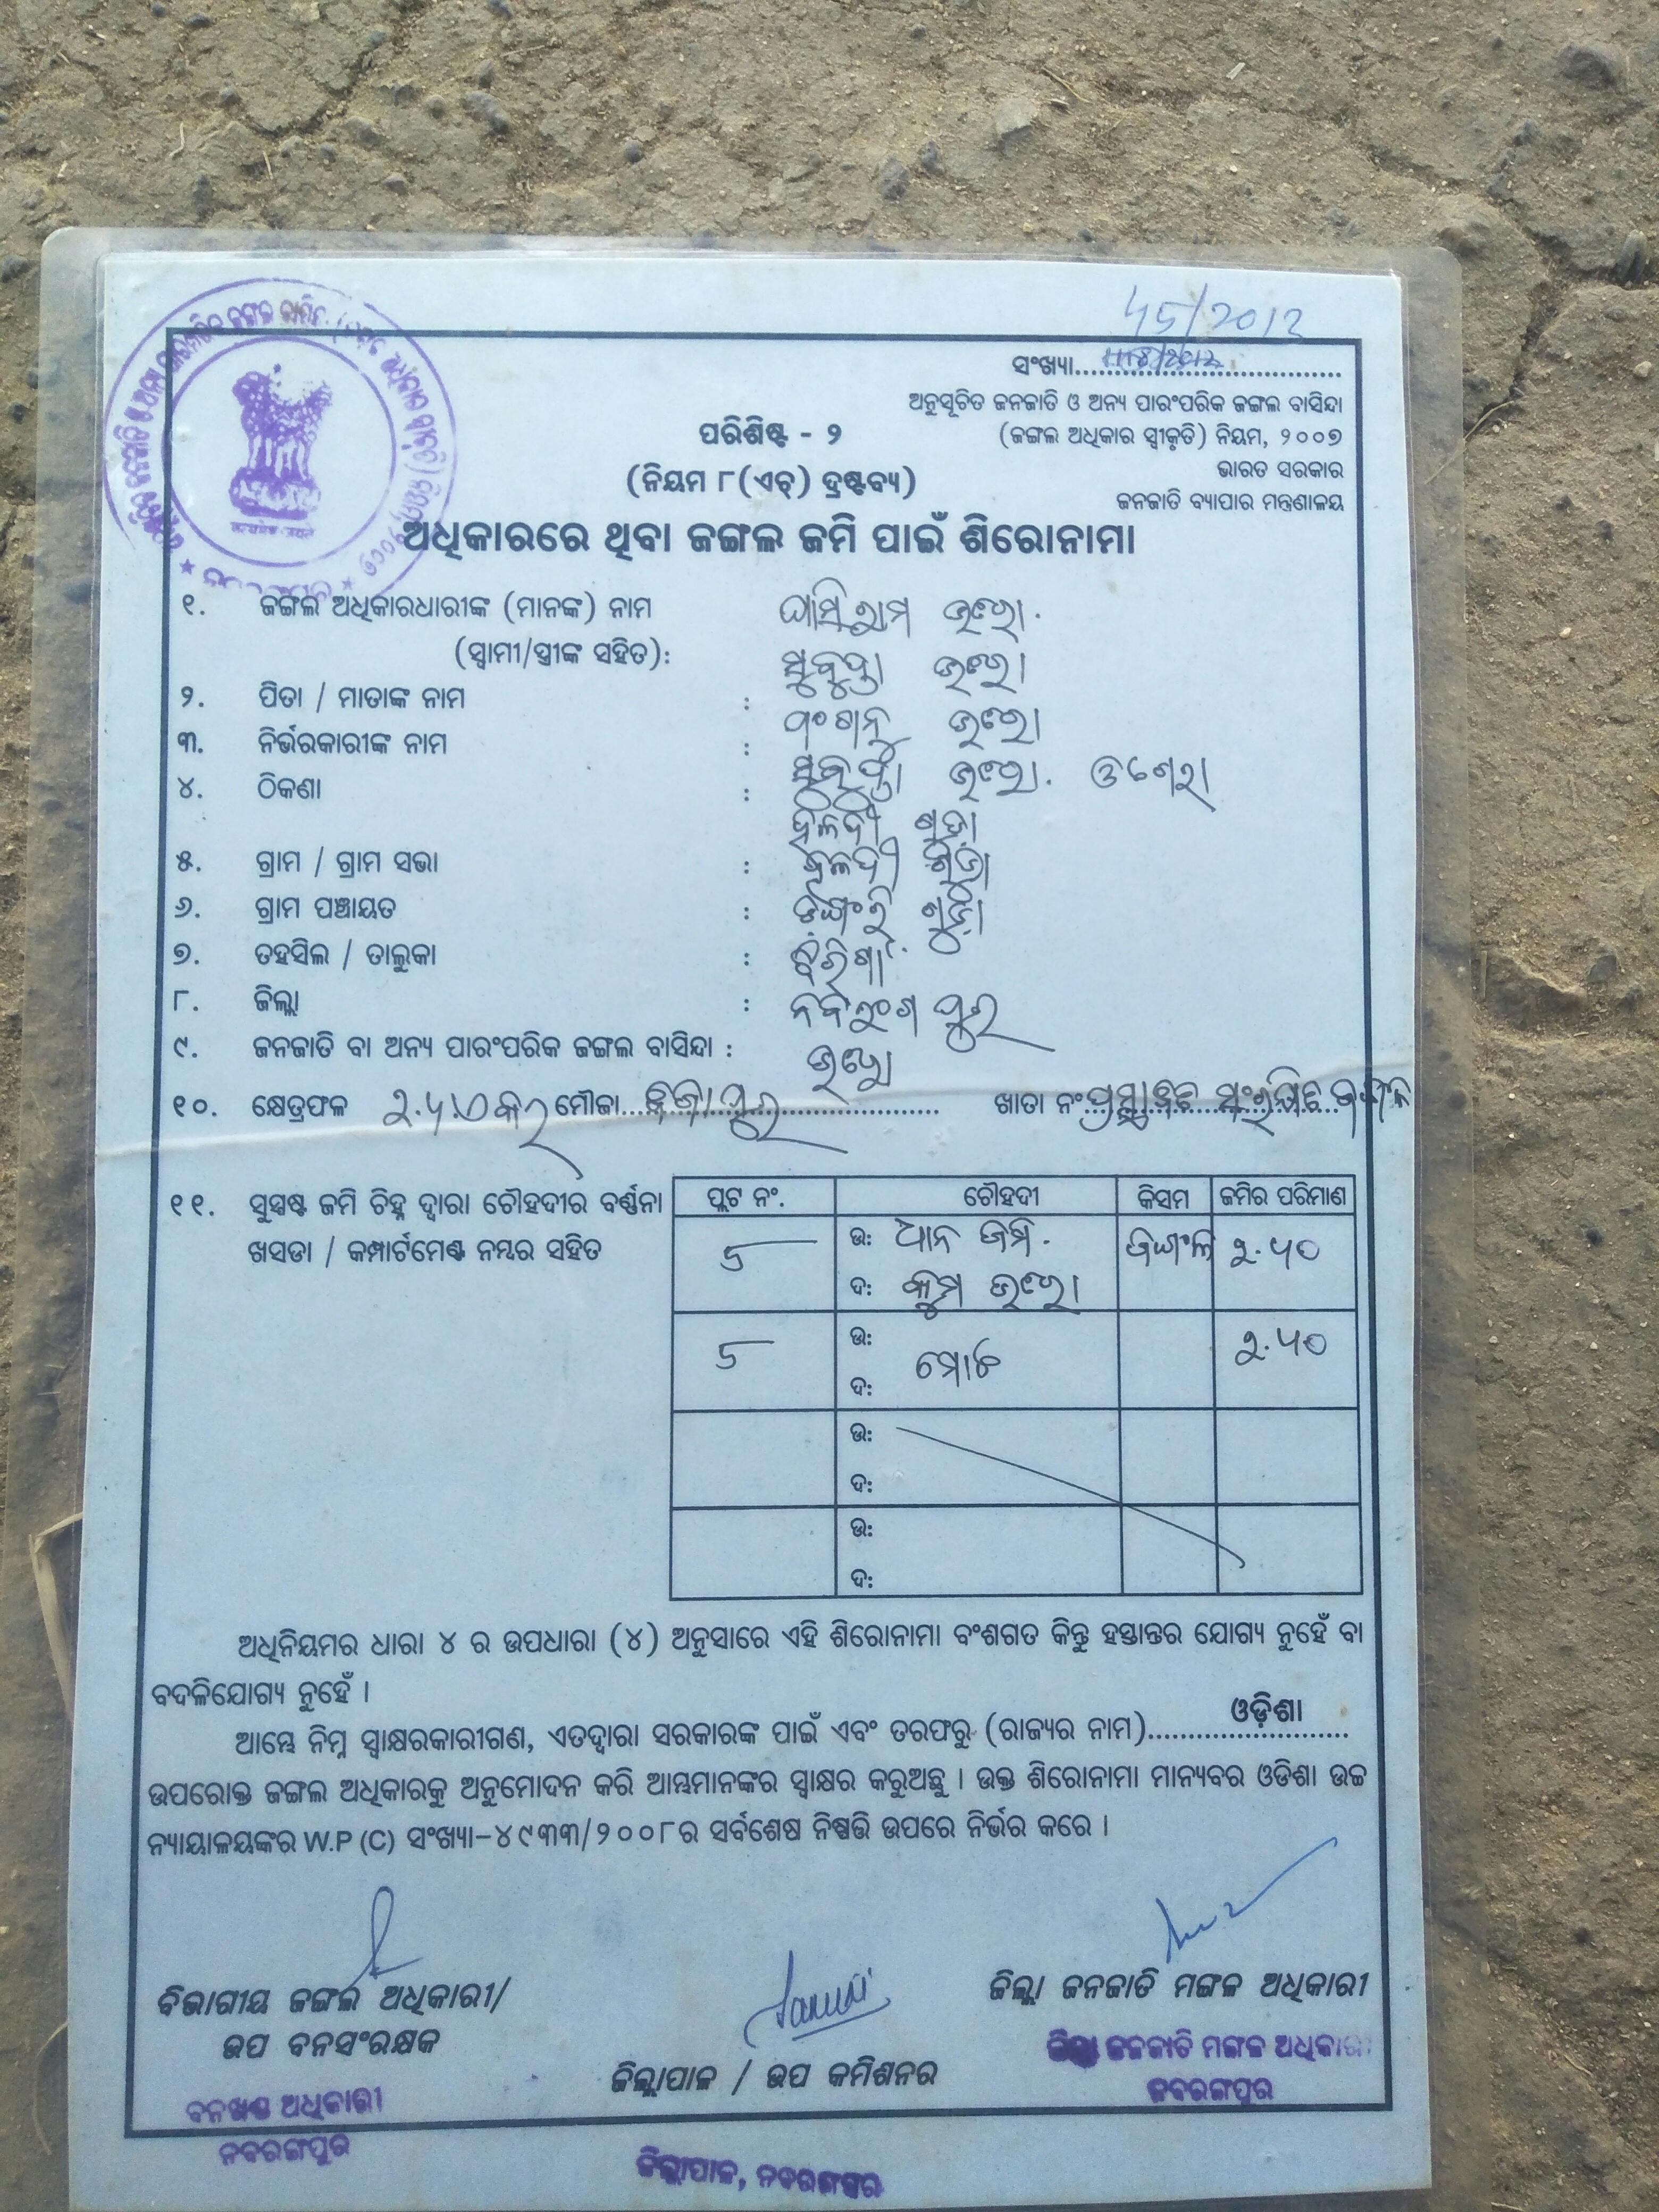 45/2012
ସଂଖ୍ୟା
ଅନୁସୂଚିତ ଜନଜାତି ଓ ଅନ୍ୟ ପାରଂପରିକ ଜଙ୍ଗଲ ବାସିନ୍ଦା
(ଜଙ୍ଗଲ ଅଧିକାର ସ୍ୱୀକୃତି) ନିୟମ, ୨୦୦୭
ଭାରତ ସରକାର
ଜନଜାତି ବ୍ୟାପାର ମନ୍ତ୍ରଣାଳୟ
ପରିଶିଷ୍ଟ - ୨
(ନିୟମ ୮(ଏଚ୍) ଦ୍ରଷ୍ଟବ୍ୟ)
ଅଧିକାରରେ ଥିବା ଜଙ୍ଗଲ ଜମି ପାଇଁ ଶିରୋନାମା
୧. ଜଙ୍ଗଲ ଅଧିକାରଧାରୀଙ୍କ (ମାନଙ୍କ) ନାମ ଘାସିରାମ ଭତ୍ରା
(ସ୍ୱାମୀ/ସ୍ତ୍ରୀଙ୍କ ସହିତ): ଭତ୍ରା
୨. ପିତା / ମାତାଙ୍କ ନାମ : ଭତ୍ରା
୩. ନିର୍ଭରକାରୀଙ୍କ ନାମ : ଭତ୍ରା
୪. ଠିକଣା : ହଳଦୀ ଗୁଡ଼ା
୫. ଗ୍ରାମ / ଗ୍ରାମ ସଭା : ହଳଦୀ ଗୁଡ଼ା
୬. ଗ୍ରାମ ପଞ୍ଚାୟତ : ଗୁଡ଼ା
୭. ତହସିଲ / ତାଲୁକା : ଝରିଗାଁ
୮. ଜିଲ୍ଲା : ନବରଂଗପୁର
୯. ଜନଜାତି ବା ଅନ୍ୟ ପାରଂପରିକ ଜଙ୍ଗଲ ବାସିନ୍ଦା : ଭତ୍ରା
୧୦. କ୍ଷେତ୍ରଫଳ ୨.୫ ଏକର ମୌଜା ପୁର ଖାତା ନଂ ପ୍ରସ୍ତାବିତ ସଂରକ୍ଷିତ ଜଙ୍ଗଲ
୧୧. ସୁସ୍ପଷ୍ଟ ଜମି ଚିହ୍ନ ଦ୍ୱାରା ଚୌହଦୀର ବର୍ଣ୍ଣନା
ଖସଡା / କମ୍ପାର୍ଟମେଣ୍ଟ ନମ୍ବର ସହିତ
ପ୍ଲଟ ନଂ. ଚୌହଦୀ କିସମ ଜମିର ପରିମାଣ
5 ଉ: ଧାନ ଜମି ଜଙ୍ଗଲ ୨.୫୦
ଦ: ଭତ୍ରା
5 ଉ: ମୋଟ ୨.୫୦
ଦ:
ଉ:
ଦ:
ଉ:
ଦ:
ଅଧିନିୟମର ଧାରା ୪ ର ଉପଧାରା (୪) ଅନୁସାରେ ଏହି ଶିରୋନାମା ବଂଶଗତ କିନ୍ତୁ ହସ୍ତାନ୍ତର ଯୋଗ୍ୟ ନୁହେଁ ବା
ବଦଳିଯୋଗ୍ୟ ନୁହେଁ ।
ଆମ୍ଭେ ନିମ୍ନ ସ୍ୱାକ୍ଷରକାରୀଗଣ, ଏତଦ୍ୱାରା ସରକାରଙ୍କ ପାଇଁ ଏବଂ ତରଫରୁ (ରାଜ୍ୟର ନାମ) ଓଡ଼ିଶା
ଉପରୋକ୍ତ ଜଙ୍ଗଲ ଅଧିକାରକୁ ଅନୁମୋଦନ କରି ଆମ୍ଭମାନଙ୍କର ସ୍ୱାକ୍ଷର କରୁଅଛୁ । ଉକ୍ତ ଶିରୋନାମା ମାନ୍ୟବର ଓଡିଶା ଉଚ୍ଚ
ନ୍ୟାୟାଳୟଙ୍କର W.P (C) ସଂଖ୍ୟା-୪୯୩୩/୨୦୦୮ର ସର୍ବଶେଷ ନିଷ୍ପତ୍ତି ଉପରେ ନିର୍ଭର କରେ ।
ବିଭାଗୀୟ ଜଙ୍ଗଲ ଅଧିକାରୀ/
ଉପ ବନସଂରକ୍ଷକ
ବନଖଣ୍ଡ ଅଧିକାରୀ
ନବରଙ୍ଗପୁର
ଜିଲ୍ଲାପାଳ / ଉପ କମିଶନର
ଜିଲ୍ଲାପାଳ, ନବରଙ୍ଗପୁର
ଜିଲ୍ଲା ଜନଜାତି ମଙ୍ଗଳ ଅଧିକାରୀ
ଜିଲ୍ଲା ଜନଜାତି ମଙ୍ଗଳ ଅଧିକାରୀ
ନବରଙ୍ଗପୁର